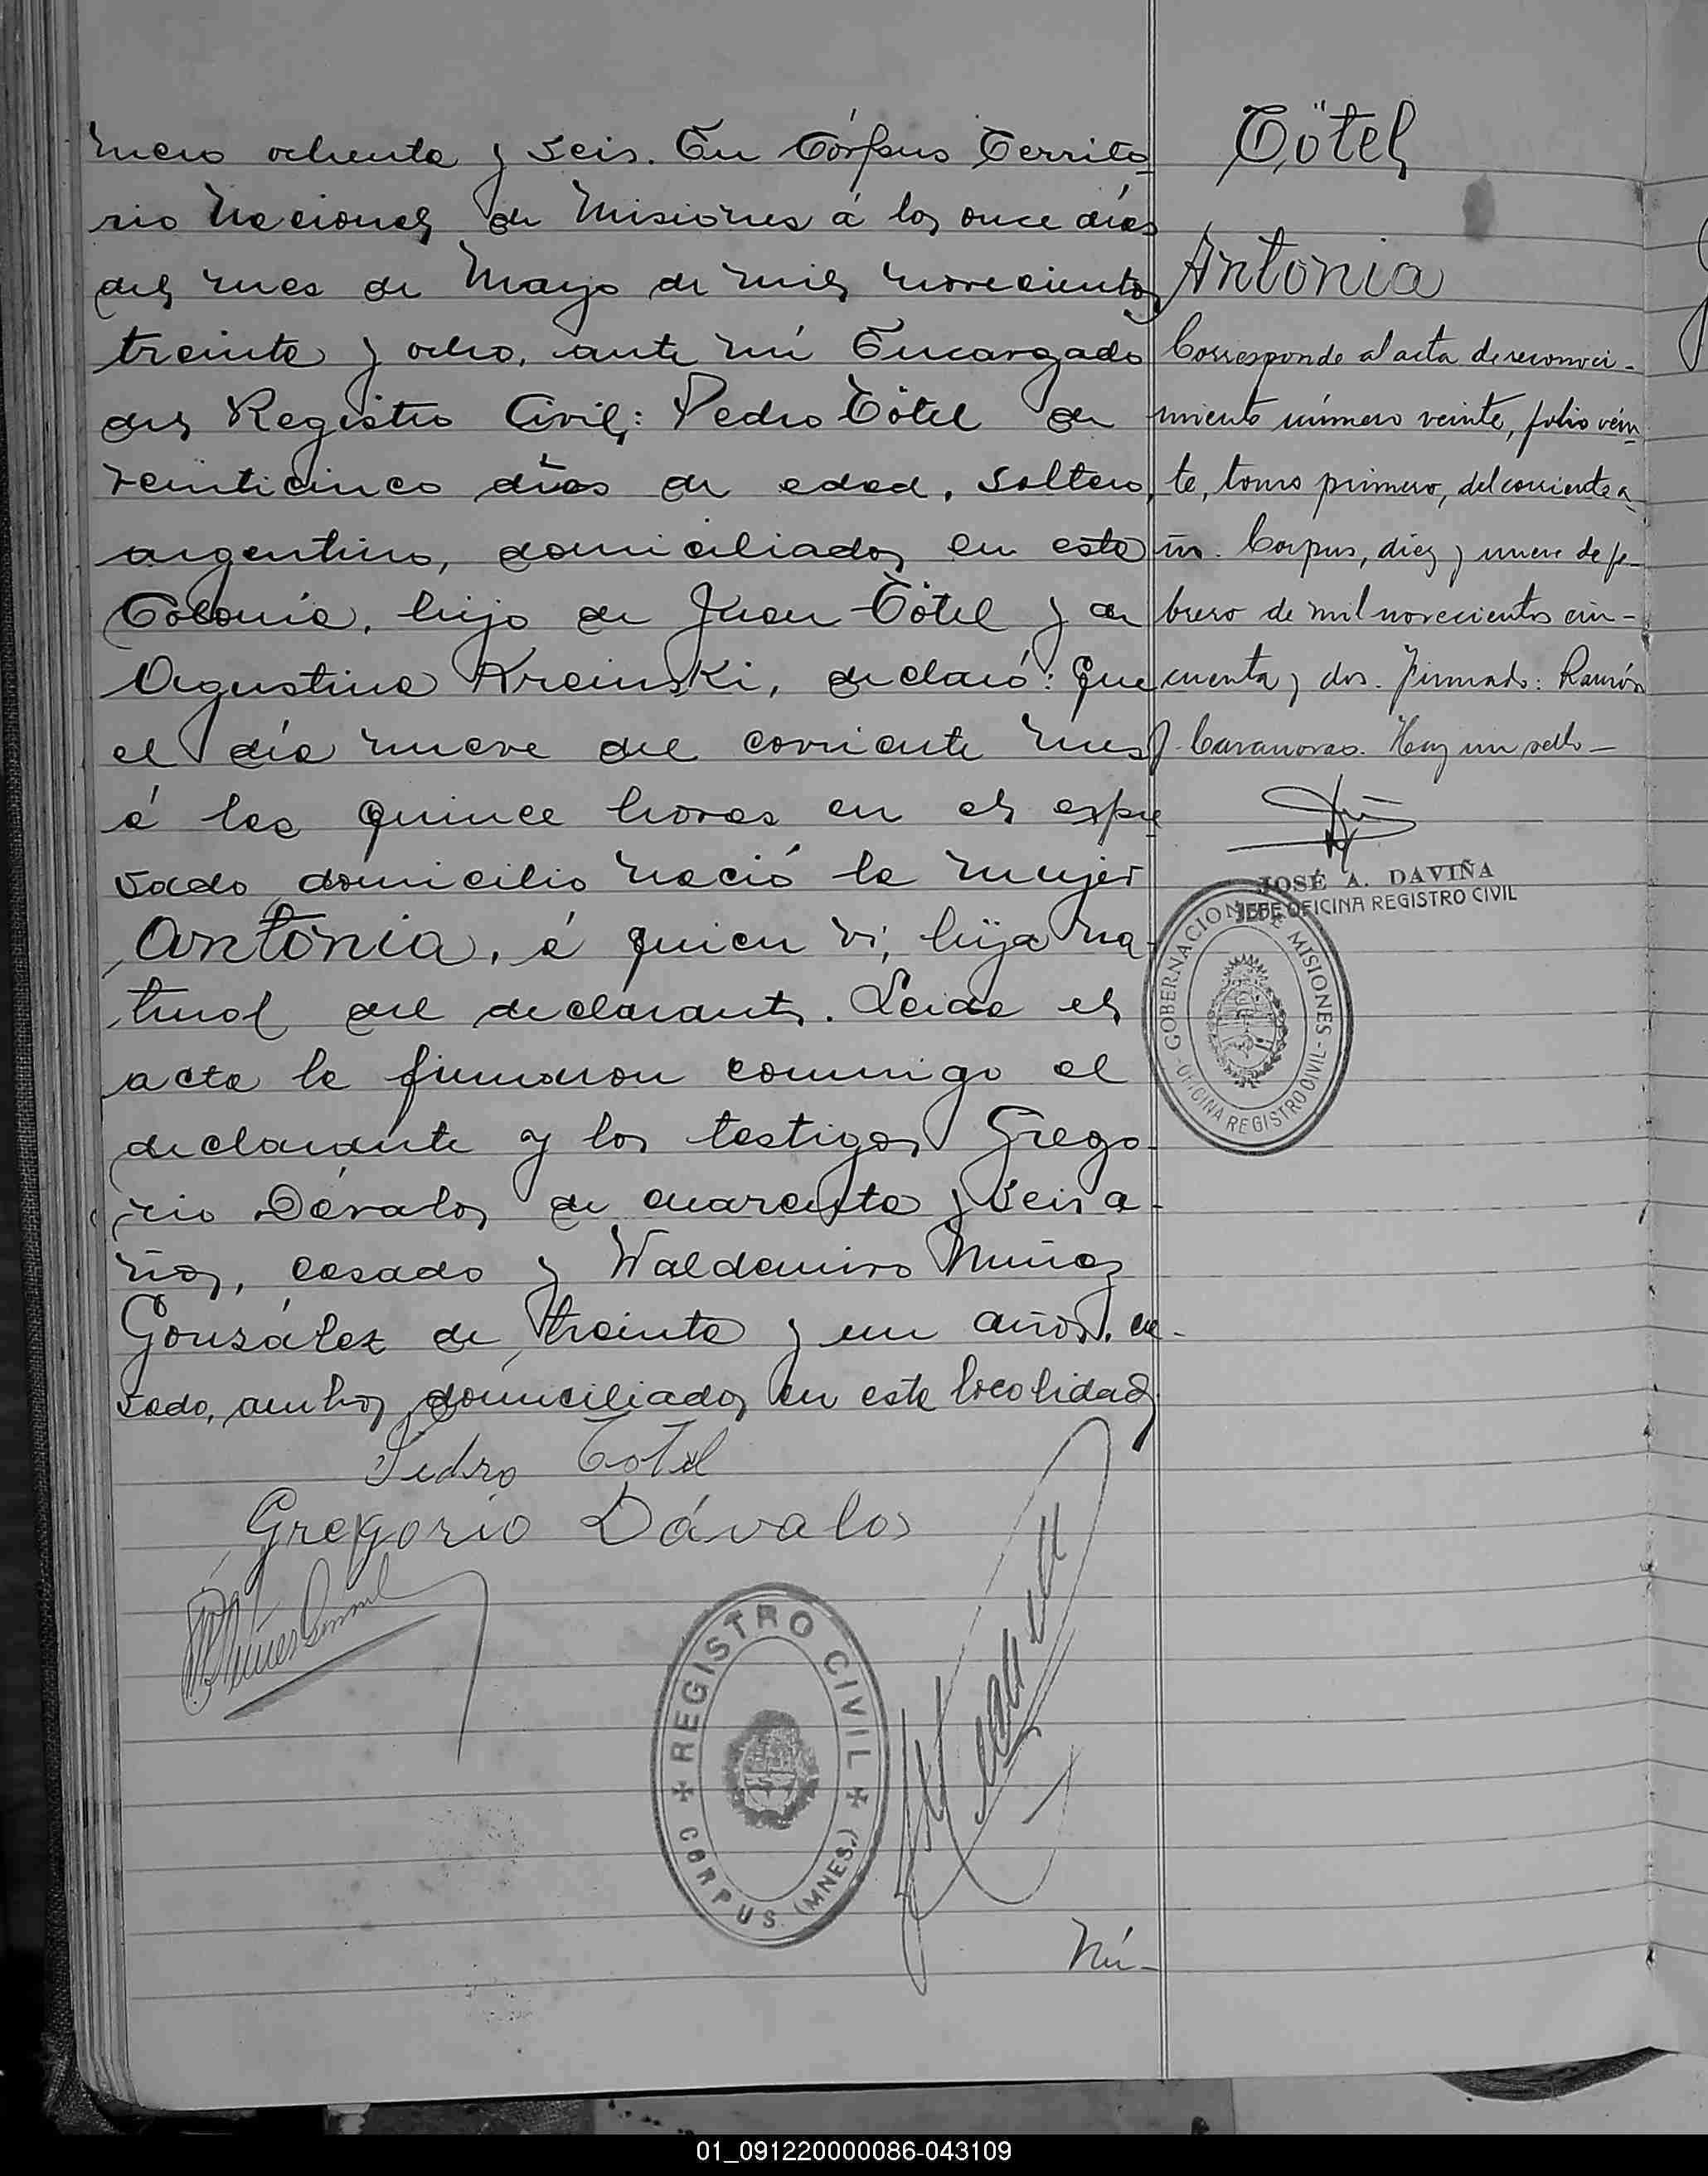 mero ochenta y seis. En Córpus Territo-
rio Nacional de Misiones á los once días
del mes de Mayo de mil novecientos
treinta y ocho, ante mi Encargado
del Registro Civil: Pedro Tötel de
veinticinco días de edad, soltero,
argentino, domiciliados en esta
Colonia, hijo de Juan Tötel y de
Agustina Kreinski, declaró: Que
el día nueve del corriente mes
á las quince horas en el expre
sado domicilio nació la mujer
Antonia, á quien vi, hija na-
tural del declarante. Leida el
acta la firmaron conmigo el
declarante y los testigos Grego-
rio Dávalos de cuarenta y seis a-
ños, casado y Waldemiro Nuñez
González de treinta y un años, ca-
sado, ambos domiciliados en esta localidad
Pedro Totel
Gregorio Dávalos
REGISTRO CIVIL
CORPUS (MNES.)
Nú-
Tötel
Antonia
Corresponde al acta de reconoci-
miento número veinte, folio vein
te, tomo primero, del corriente a-
ño. Corpus, diez y nueve de fe-
brero de mil novecientos cin-
cuenta y dos. Firmado: Ramón
Casanovas. Hay un sello-
JOSÉ A. DAVIÑA
JEFE OFICINA REGISTRO CIVIL
GOBERNACION DE MISIONES
OFICINA REGISTRO CIVIL
01_091220000086-043109